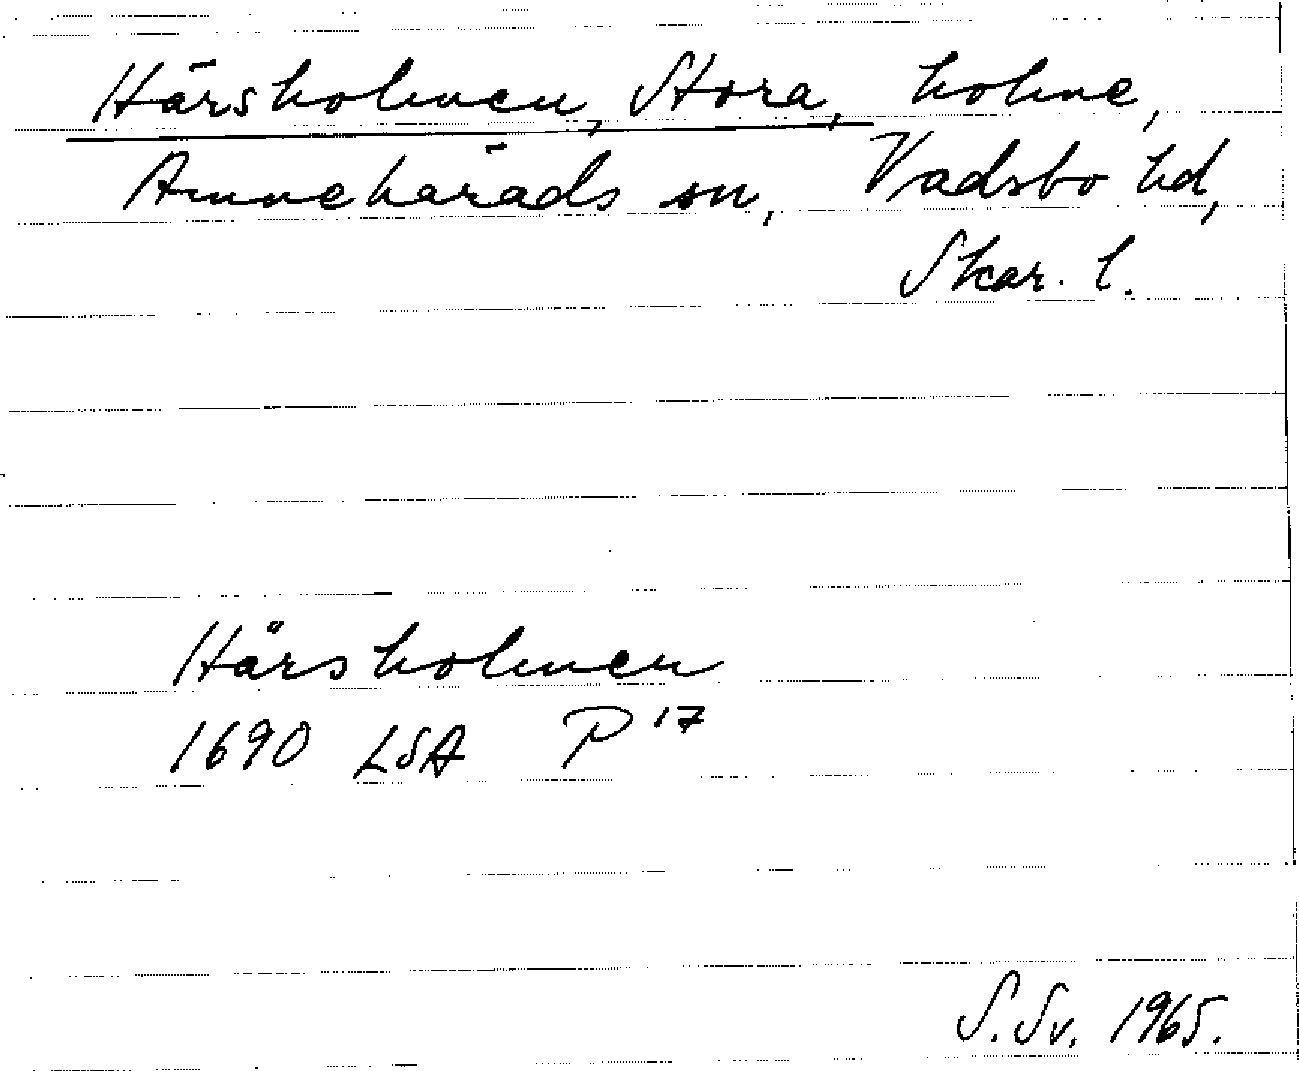 Härsholmen, Stora, holme,
Amnehärads sn, Vadsbo hd,
Skar. l.
Härsholmen
1690 LSA P 17
S. Sv. 1965.